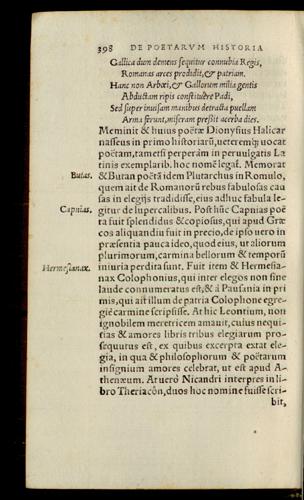 398 DE POETARVM HISTORIA
Gallica dum demens sequitur connubia Regis,
Romanas arces prodidit, & patriam.
Hanc non Arboxi, & Gallorum milia gentis
Abductam ripis constituêre Padi,
Sed super inuisam manibus detracta puellam
Arma ferunt, miseram prestit acerba dies.
Meminit & huius poëtæ Dionysius Halicar
nasseus in primo historiarũ, ueteremq; uocat
poëtam, tametsi perperàm in peruulgatis La
tinis exemplarib. hoc nomẽ legat. Memorat
Butas. & Butan poëtã idem Plutarchus in Romulo,
quem ait de Romanorũ rebus fabulosas cau
sas in elegijs tradidisse, eius adhuc fabula le-
Capnias. gitur de lupercalibus. Post hũc Capnias poë
ta fuit splendidus & copiosus, qui apud Græ
cos aliquandiu fuit in precio, de ipso uero in
præsentia pauca ideo, quod eius, ut aliorum
plurimorum, carmina bellorum & temporũ
Hermesianax. iniuria perdita sunt. Fuit item & Hermesia-
nax Colophonius, qui inter elegos non sine
laude connumeratus est, & à Pausania in pri
mis, qui ait illum de patria Colophone egre-
giè carmine scripsisse. At hic Leontium, non
ignobilem meretricem amauit, cuius nequi-
tias & amores libris tribus elegiarum pro-
sequutus est, ex quibus excerpta extat ele-
gia, in qua & philosophorum & poëtarum
insignium amores celebrat, ut est apud A-
thenæum. At uerò Nicandri interpres in li-
bro Theriacôn, duos hoc nomine fuisse scri-
bit,